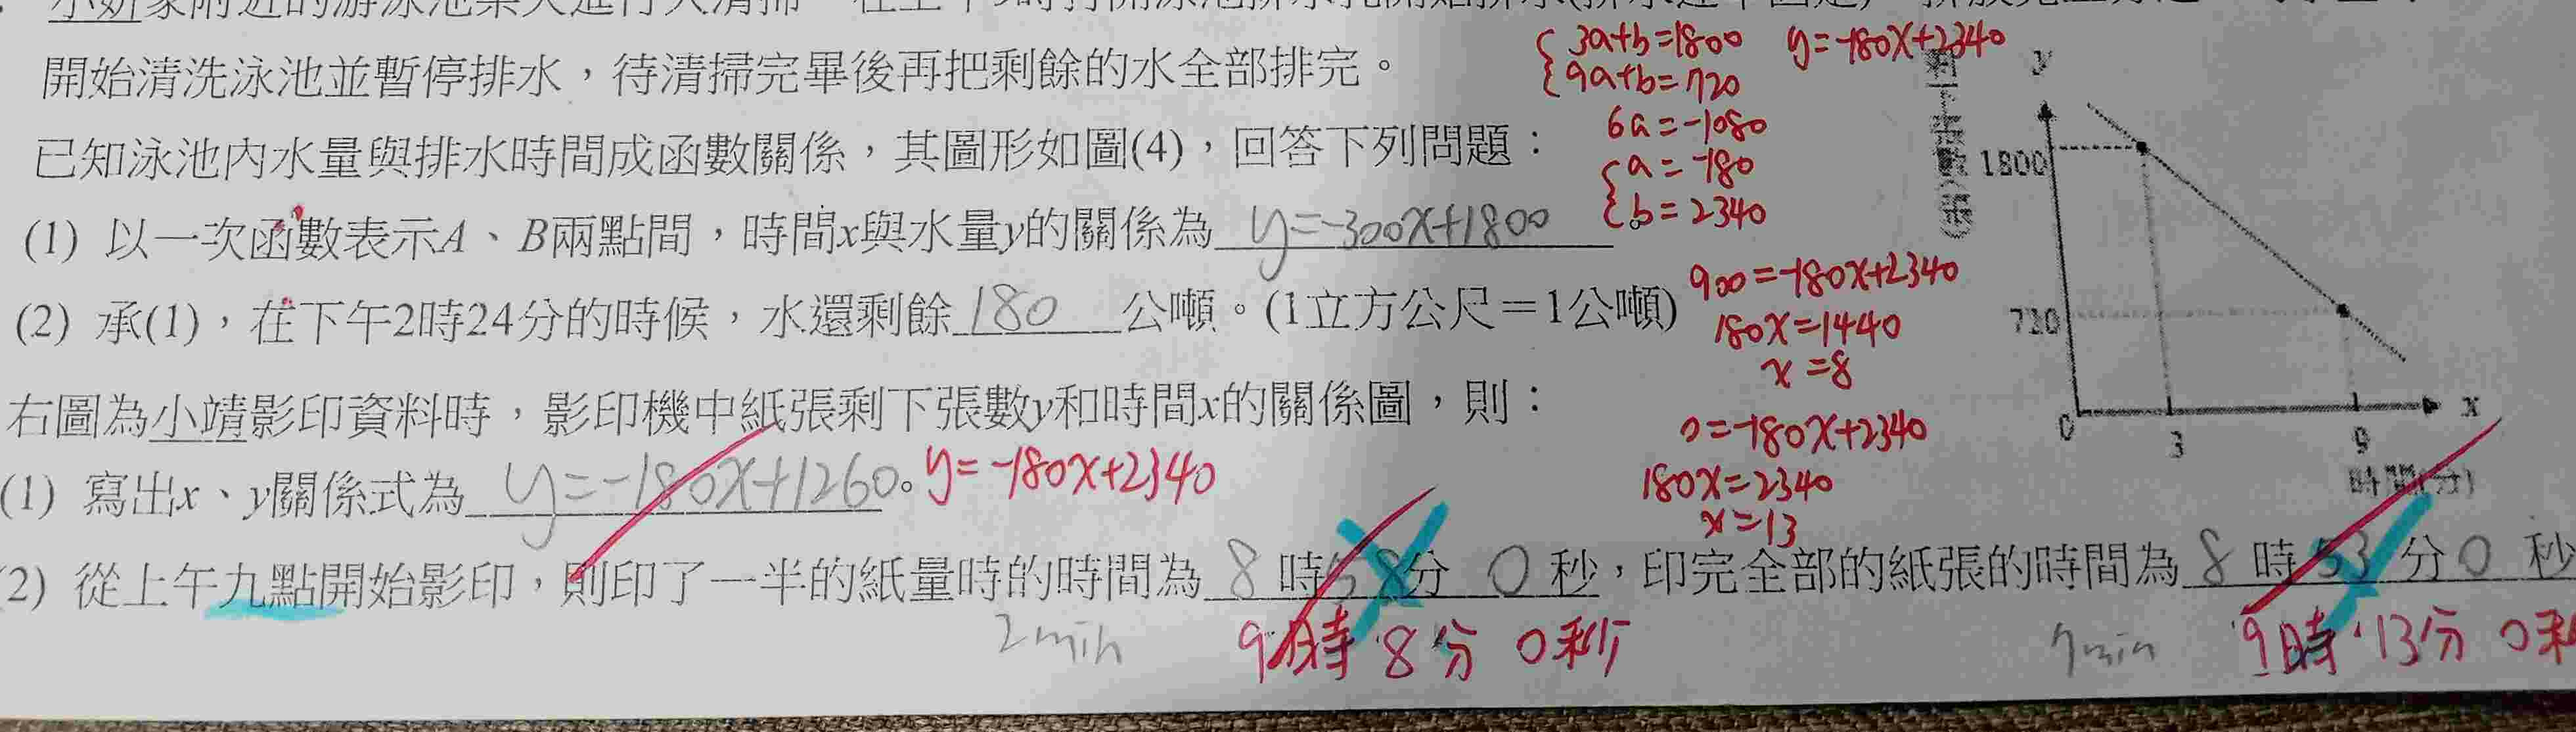 開始清洗泳池並暫停排水，待清掃完畢後再把剩餘的水全部排完。
已知泳池內水量與排水時間成函數關係，其圖形如圖(4)，回答下列問題：
(1) 以一次函數表示A、B兩點間，時間x與水量y的關係為 y=-300x+1800
(2) 承(1)，在下午2時24分的時候，水還剩餘 180 公噸。(1立方公尺＝1公噸)
右圖為小靖影印資料時，影印機中紙張剩下張數y和時間x的關係圖，則：
(1) 寫出x、y關係式為 y=-180x+1260。 y=-180x+2340
(2) 從上午九點開始影印，則印了一半的紙量時的時間為 8 時 58 分 0 秒，印完全部的紙張的時間為 8 時 53 分 0 秒
2min
9時 8分 0秒
7min
9時 13分 0秒
3a+b=1800
9a+b=720
6a=-1080
a=-180
b=2340
y=-180x+2340
900=-180x+2340
180x=1440
x=8
0=-180x+2340
180x=2340
x=13
y
剩下張數(張)
1800
720
0
3
9
x
時間(分)